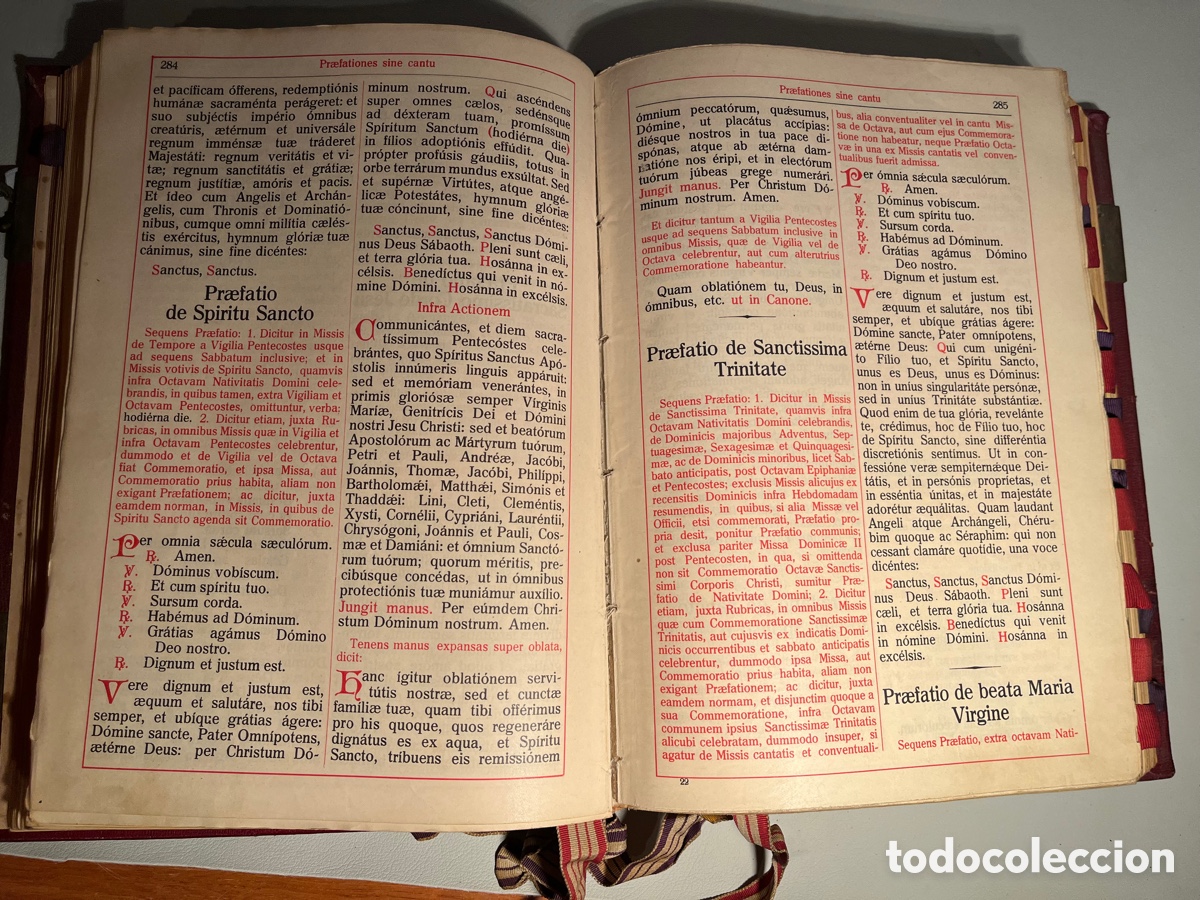 284
Præfationes sine cantu
et pacíficam ófferens, redemptiónis
humánæ sacraménta perágeret: et
suo subjéctis império ómnibus
creatúris, ætérnum et universále
regnum imménsæ tuæ tráderet
Majestáti: regnum veritátis et vi-
tæ; regnum sanctitátis et grátiæ;
regnum justítiæ, amóris et pacis.
Et ídeo cum Angelis et Archán-
gelis, cum Thronis et Dominatió-
nibus, cumque omni milítia cælés-
tis exércitus, hymnum glóriæ tuæ
cánimus, sine fine dicéntes:
Sanctus, Sanctus.
Præfatio
de Spiritu Sancto
Sequens Præfatio: 1. Dicitur in Missis
de Tempore a Vigilia Pentecostes usque
ad sequens Sabbatum inclusive; et in
Missis votivis de Spiritu Sancto, quamvis
infra Octavam Nativitatis Domini cele-
brandis, in quibus tamen, extra Vigiliam et
Octavam Pentecostes, omittuntur, verba:
hodiérna die. 2. Dicitur etiam, juxta Ru-
bricas, in omnibus Missis quæ in Vigilia et
infra Octavam Pentecostes celebrentur,
dummodo et de Vigilia vel de Octava
fiat Commemoratio, et ipsa Missa, aut
Commemoratio prius habita, aliam non
exigant Præfationem; ac dicitur, juxta
eamdem norman, in Missis, in quibus de
Spiritu Sancto agenda sit Commemoratio.
Per omnia sǽcula sæculórum.
℟. Amen.
℣. Dóminus vobíscum.
℟. Et cum spíritu tuo.
℣. Sursum corda.
℟. Habémus ad Dóminum.
℣. Grátias agámus Dómino
Deo nostro.
℟. Dignum et justum est.
Vere dignum et justum est,
æquum et salutáre, nos tibi
semper, et ubíque grátias ágere:
Dómine sancte, Pater Omnípotens,
ætérne Deus: per Christum Dó-
minum nostrum. Qui ascéndens
super omnes cælos, sedénsque
ad déxteram tuam, promíssum
Spíritum Sanctum (hodiérna die)
in fílios adoptiónis effúdit. Qua-
própter profúsis gáudiis, totus in
orbe terrárum mundus exsúltat. Sed
et supérnæ Virtútes, atque angé-
licæ Potestátes, hymnum glóriæ
tuæ cóncinunt, sine fine dicéntes:
Sanctus, Sanctus, Sanctus Dómi-
nus Deus Sábaoth. Pleni sunt cæli,
et terra glória tua. Hosánna in ex-
célsis. Benedíctus qui venit in nó-
mine Dómini. Hosánna in excélsis.
Infra Actionem
Communicántes, et diem sacra-
tíssimum Pentecóstes cele-
brántes, quo Spíritus Sanctus Apó-
stolis innúmeris linguis appáruit:
sed et memóriam venerántes, in
primis gloriósæ semper Vírginis
Maríæ, Genitrícis Dei et Dómini
nostri Jesu Christi: sed et beatórum
Apostolórum ac Mártyrum tuórum,
Petri et Pauli, Andréæ, Jacóbi,
Joánnis, Thomæ, Jacóbi, Philíppi,
Bartholomǽi, Matthǽi, Simónis et
Thaddǽi: Lini, Cleti, Cleméntis,
Xysti, Cornélii, Cypriáni, Lauréntii,
Chrysógoni, Joánnis et Pauli, Cos-
mæ et Damiáni: et ómnium Sanctó-
rum tuórum; quorum méritis, pre-
cibúsque concédas, ut in ómnibus
protectiónis tuæ muniámur auxílio.
Jungit manus. Per eúmdem Chri-
stum Dóminum nostrum. Amen.
Tenens manus expansas super oblata,
dicit:
Hanc ígitur oblatiónem servi-
tútis nostræ, sed et cunctæ
famíliæ tuæ, quam tibi offérimus
pro his quoque, quos regeneráre
dignátus es ex aqua, et Spíritu
Sancto, tríbuens eis remissiónem
Præfationes sine cantu
285
ómnium peccatórum, quǽsumus,
Dómine, ut placátus accípias:
diésque nostros in tua pace di-
spónas, atque ab ætérna dam-
natióne nos éripi, et in electórum
tuórum júbeas grege numerári.
Jungit manus. Per Christum Dó-
minum nostrum. Amen.
Et dicitur tantum a Vigilia Pentecostes
usque ad sequens Sabbatum inclusive in
omnibus Missis, quæ de Vigilia vel de
Octava celebrentur, aut cum alterutrius
Commemoratione habeantur.
Quam oblatiónem tu, Deus, in
ómnibus, etc. ut in Canone.
Præfatio de Sanctissima
Trinitate
Sequens Præfatio: 1. Dicitur in Missis
de Sanctissima Trinitate, quamvis infra
Octavam Nativitatis Domini celebrandis,
de Dominicis majoribus Adventus, Sep-
tuagesimæ, Sexagesimæ et Quinquagesi-
mæ, ac de Dominicis minoribus, licet Sab-
bato anticipatis, post Octavam Epiphaniæ
et Pentecostes; exclusis Missis alicujus ex
recensitis Dominicis infra Hebdomadam
resumendis, in quibus, si alia Missæ vel
Officii, etsi commemorati, Præfatio pro-
pria desit, ponitur Præfatio communis;
et exclusa pariter Missa Dominicæ II
post Pentecosten, in qua, si omittenda
non sit Commemoratio Octavæ Sanctis-
simi Corporis Christi, sumitur Præ-
fatio de Nativitate Domini; 2. Dicitur
etiam, juxta Rubricas, in omnibus Missis
quæ cum Commemoratione Sanctissimæ
Trinitatis, aut cujusvis ex indicatis Domi-
nicis occurrentibus et sabbato anticipatis
celebrentur, dummodo ipsa Missa, aut
Commemoratio prius habita, aliam non
exigant Præfationem; ac dicitur, juxta
eamdem normam, et disjunctim quoque a
sua Commemoratione, infra Octavam
communem ipsius Sanctissimæ Trinitatis
alicubi celebratam, dummodo insuper, si
agatur de Missis cantatis et conventuali-
bus, alia conventualiter vel in cantu Mis-
sa de Octava, aut cum ejus Commemora-
tione non habeatur, neque Præfatio Octa-
væ in una ex Missis cantatis vel conven-
tualibus fuerit admissa.
Per ómnia sǽcula sæculórum.
℟. Amen.
℣. Dóminus vobíscum.
℟. Et cum spíritu tuo.
℣. Sursum corda.
℟. Habémus ad Dóminum.
℣. Grátias agámus Dómino
Deo nostro.
℟. Dignum et justum est.
Vere dignum et justum est,
æquum et salutáre, nos tibi
semper, et ubíque grátias ágere:
Dómine sancte, Pater omnípotens,
ætérne Deus: Qui cum unigéni-
to Fílio tuo, et Spíritu Sancto,
unus es Deus, unus es Dóminus:
non in uníus singularitáte persónæ,
sed in uníus Trinitáte substántiæ.
Quod enim de tua glória, revelán-
te, crédimus, hoc de Fílio tuo, hoc
de Spíritu Sancto, sine differéntia
discretiónis sentimus. Ut in con-
fessióne veræ sempiternǽque Dei-
tátis, et in persónis propríetas, et
in esséntia únitas, et in majestáte
adorétur æquálitas. Quam laudant
Angeli atque Archángeli, Chéru-
bim quoque ac Séraphim: qui non
cessant clamáre quotídie, una voce
dicéntes:
Sanctus, Sanctus, Sanctus Dómi-
nus Deus Sábaoth. Pleni sunt
cæli, et terra glória tua. Hosánna
in excélsis. Benedíctus qui venit
in nómine Dómini. Hosánna in
excélsis.
Præfatio de beata Maria
Virgine
Sequens Præfatio, extra octavam Nati-
22
todocoleccion